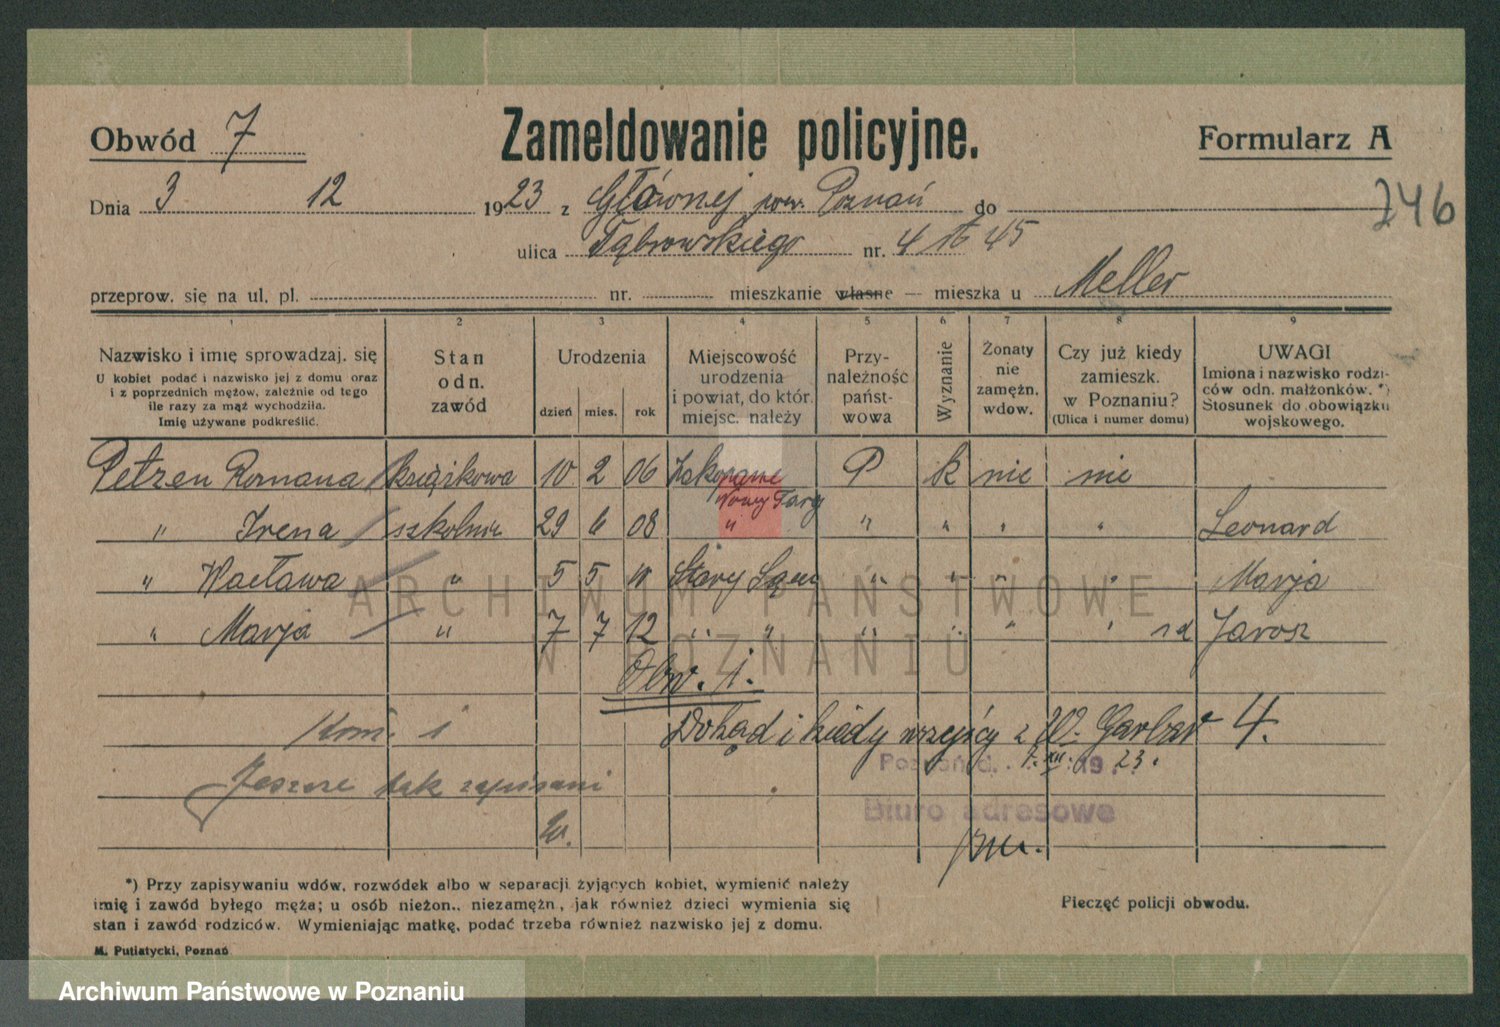 Obwód 7
Zameldowanie policyjne.
Formularz A
Dnia 3 12 1923 z Głównej pow. Poznań do
246
ulica Dąbrowskiego nr. 45
przeprow. się na ul. pl. nr. mieszkanie własne — mieszka u Meller
1 2 3 4 5 6 7 8 9
Nazwisko i imię sprowadzaj. się
U kobiet podać i nazwisko jej z domu oraz
i z poprzednich mężow, zależnie od tego
ile razy za mąż wychodziła.
Imię używane podkreślić.
Stan
odn.
zawód
Urodzenia
dzień mies. rok
Miejscowość
urodzenia
i powiat, do któr.
miejsc. należy
Przy-
należność
państ-
wowa
Wyznanie
Żonaty
nie
zamężn.
wdow.
Czy już kiedy
zamieszk.
w Poznaniu?
(Ulica i numer domu)
UWAGI
Imiona i nazwisko rodzi-
ców odn. małżonków. *)
Stosunek do obowiązku
wojskowego.
Petzen Romana książkowa 10 2 06 Zakopane P k nie nie
Nowy Targ
" Irena szkolna 29 6 08 " " " " " Leonard
" Wacława " 5 5 Stary Sącz " " " " Marja
" Marja " 7 7 12 " " " " " " Jarosz
Obw. i.
Dokąd i kiedy wyszejścy z W. Garbar 4.
Poznań d. 7. XII. 1923.
Jeszcze tak zapisani
Biuro adresowe
*) Przy zapisywaniu wdów, rozwódek albo w separacji żyjących kobiet, wymienić należy
imię i zawód byłego męża; u osób nieżon., niezamężn., jak również dzieci wymienia się
stan i zawód rodziców. Wymieniając matkę, podać trzeba również nazwisko jej z domu.
Pieczęć policji obwodu.
M. Putiatycki, Poznań
ARCHIWUM PAŃSTWOWE
W POZNANIU
Archiwum Państwowe w Poznaniu